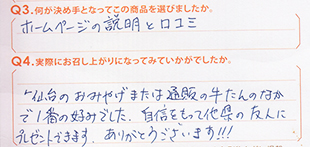 Q3.何が決め手となってこの商品を選びましたか。
ホームページの説明と口コミ
Q4.実際にお召し上がりになってみていかがでしたか。
仙台のおみやげまたは通販の牛たんのなか
で1番の好みでした。自信をもって他県の友人に
プレゼントできます。ありがとうございます!!!